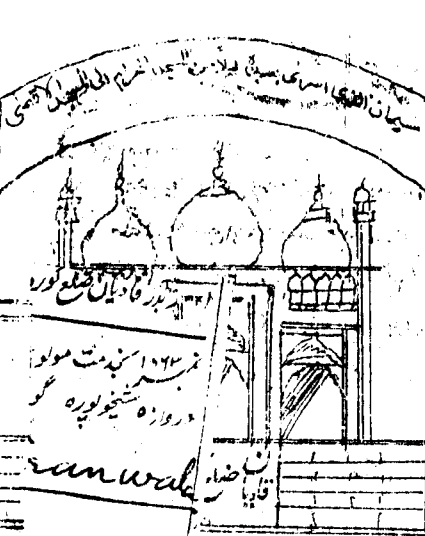 سبحان الذی اسری بعبدہ لیلاً من المسجد الحرام الی المسجد الاقصی
بدر قادیان ضلع گورد
نمبر ۱۰۶۲ بخدمت مولو
دروازہ شیخوپورہ گو
ranwala
قادیان